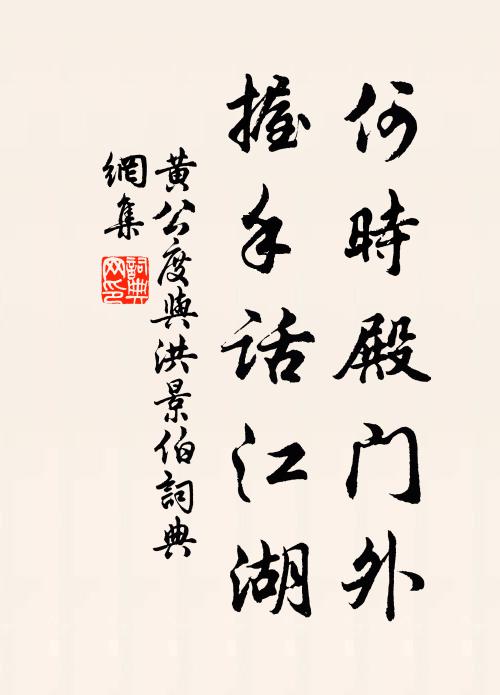 何時殿门外
握手話江湖
黄公度與洪景伯詞典
網集
詞典
网印